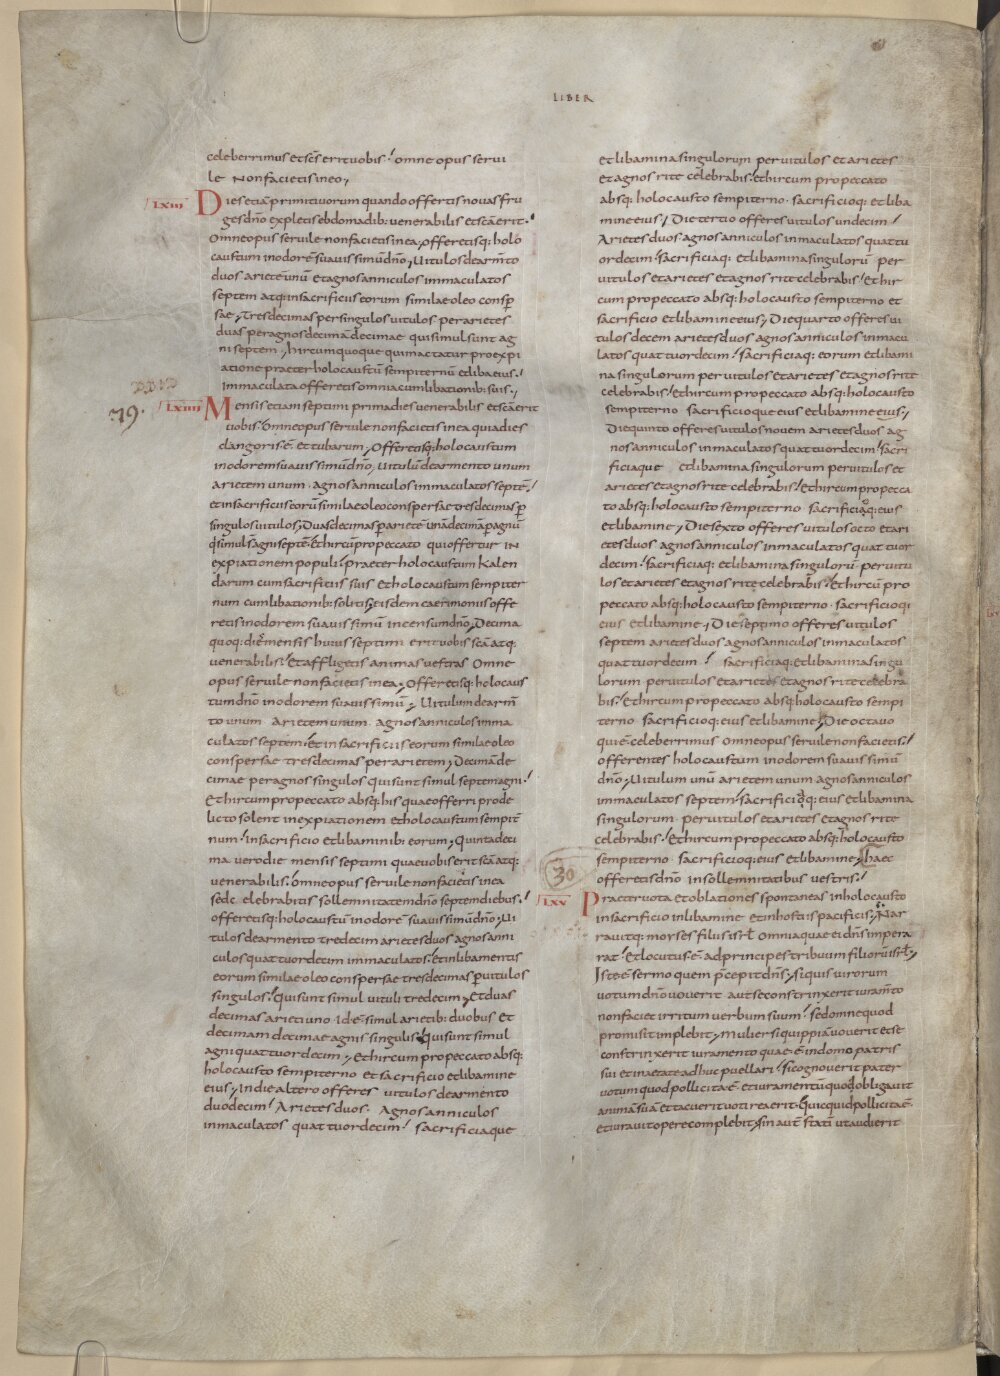 LIBER
celeberrimus et scs erit uobis omne opus serui
le non facietis in eo
LXIII Dies etiam primitiuorum quando offertis nouas fru
ges dno expletis ebdomadib: uenerabilis et sca erit.
Omne opus seruile non facietis in ea, offeretisq: holo
caustum in odorem suauissimum dno, Uitulos de armto
duos arietem unum et agnos anniculos immaculatos
septem atq: in sacrificiis eorum similae oleo consper
sae, Tres decimas per singulos uitulos per arietes
duas per agnos decimam decimae qui simul sunt ag
ni septem, hircum quoque qui mactatur pro expi
atione praeter holocaustum sempiternum et liba eius.
Immaculata offeretis omnia cum libationib: suis,
79. LXIIII Mensis etiam septimi prima dies uenerabilis et sca erit
uobis. Omne opus seruile non facietis in ea quia dies
clangoris e et tubarum, Offeretisq: holocaustum
in odorem suauissimum dno, Uitulum de armento unum
arietem unum agnos anniculos immaculatos septe
et in sacrificiis eorum similae oleo conspersae tres decimas per
singulos uitulos, Duas decimas per ariete una decima per agnum
qi simul s agni septe. Et hircum pro peccato qui offertur in
expiationem populi. Praeter holocaustum Kalen
darum cum sacrificiis suis et holocaustum sempiter
num cum libationib: solitis, eisdem caerimoniis offe
retis in odorem suauissimum incensum dno, Decima
quoq: die mensis huius septimi erit uobis sca atq:
uenerabilis. Et affligetis animas uestras Omne
opus seruile non facietis in ea, Offeretisq: holocaus
tum dno in odorem suauissimum, Uitulum de arm
to unum arietem unum agnos anniculos imma
culatos septem. Et in sacrificiis eorum similae oleo
conspersae tres decimas per arietem, Decima de
cimae per agnos singulos qui sunt simul septem agni.
Et hircum pro peccato absq: his quae offerri pro de
licto solent in expiationem et holocaustum sempit
num. in sacrificio et libaminib: eorum, Quinta deci
ma uero die mensis septimi quae uobis erit sca atq:
uenerabilis. Omne opus seruile non facietis in ea
sed celebrabitis sollemnitatem dno septem diebus.
offeretisq: holocaustum in odore suauissimum dno, Ui
tulos de armento tredecim arietes duos agnos anni
culos quattuordecim immaculatos. Et in libamentis
eorum similae oleo conspersae tres decimas per uitulos
singulos. Qui sunt simul uituli tredecim, Et duas
decimas arieti uno id e simul arietib: duobus et
decimam decimae agnis singulis qui sunt simul
agni quattuordecim, Et hircum pro peccato absq:
holocausto sempiterno et sacrificio et libamine
eius, In die altero offeres uitulos de armento
duodecim. Arietes duos Agnos anniculos
inmaculatos quattuordecim. sacrificiaque
et libamina singulorum per uitulos et arietes
et agnos rite celebrabis. Et hircum pro peccato
absq: holocausto sempiterno. sacrificioq: et liba
mine eius, Die tertio offeres uitulos undecim.
Arietes duos agnos anniculos inmaculatos quattu
ordecim. sacrificiaq: et libamina singulorum per
uitulos et arietes et agnos rite celebrabis. Et hir
cum pro peccato absq: holocausto sempiterno et
sacrificio et libamine eius, Die quarto offeres ui
tulos decem arietes duos agnos anniculos inmacu
latos quattuordecim. sacrificiaq: eorum et libami
na singulorum per uitulos et arietes et agnos rite
celebrabis. Et hircum pro peccato absq: holocausto
sempiterno sacrificioque eius et libamine eius,
Die quinto offeres uitulos nouem arietes duos ag
nos anniculos inmaculatos quattuordecim. sacri
ficiaque et libamina singulorum per uitulos et
arietes et agnos rite celebrabis. Et hircum pro pecca
to absq: holocausto sempiterno sacrificiaq: eius
et libamine, Die sexto offeres uitulos octo et ari
etes duos agnos anniculos inmaculatos quattuor
decim. sacrificiaq: et libamina singulorum per uitu
los et arietes et agnos rite celebrabis. Et hircum pro
peccato absq: holocausto sempiterno. sacrificioq:
eius et libamine, Die septimo offeres uitulos
septem arietes duos agnos anniculos inmaculatos
quattuordecim. sacrificiaq: et libamina singu
lorum per uitulos et arietes et agnos rite celebra
bis. Et hircum pro peccato absq holocausto sempi
terno sacrificioq: eius et libamine, Die octauo
qui e celeberrimus omne opus seruile non facietis.
offerentes holocaustum in odorem suauissimu
dno, Uitulum unum arietem unum agnos anniculos
immaculatos septem. sacrificioq: eius et libamina
singulorum per uitulos et arietes et agnos rite
celebrabis. Et hircum pro peccato absq: holocausto
sempiterno sacrificioq: eius et libamine, haec
30 offeretis dno in sollemnitatibus uestris.
LXV Praeter uota et oblationes spontaneas in holocausto
in sacrificio in libamine et in hostiis pacificis, Nar
rauitq: moyses filiis isrl omnia quae ei dns impera
rat. Et locutus e ad principes tribuum filiorum isrl,
Iste e sermo quem praecepit dns, si quis uirorum
uotum dno uouerit aut se constrinxerit iuramto
non faciet irritum uerbum suum. sed omne quod
promisit implebit, Mulier si quippiam uouerit et se
constrinxerit iuramento quae e in domo patris
sui et in aetate adhuc puellari. si cognouerit pater
uotum quod pollicita e et iuramentum quod obligauit
animam sua et tacuerit uoti rea erit. Quicquid pollicita e
et iurauit opere complebit, sin aut statim ut audierit